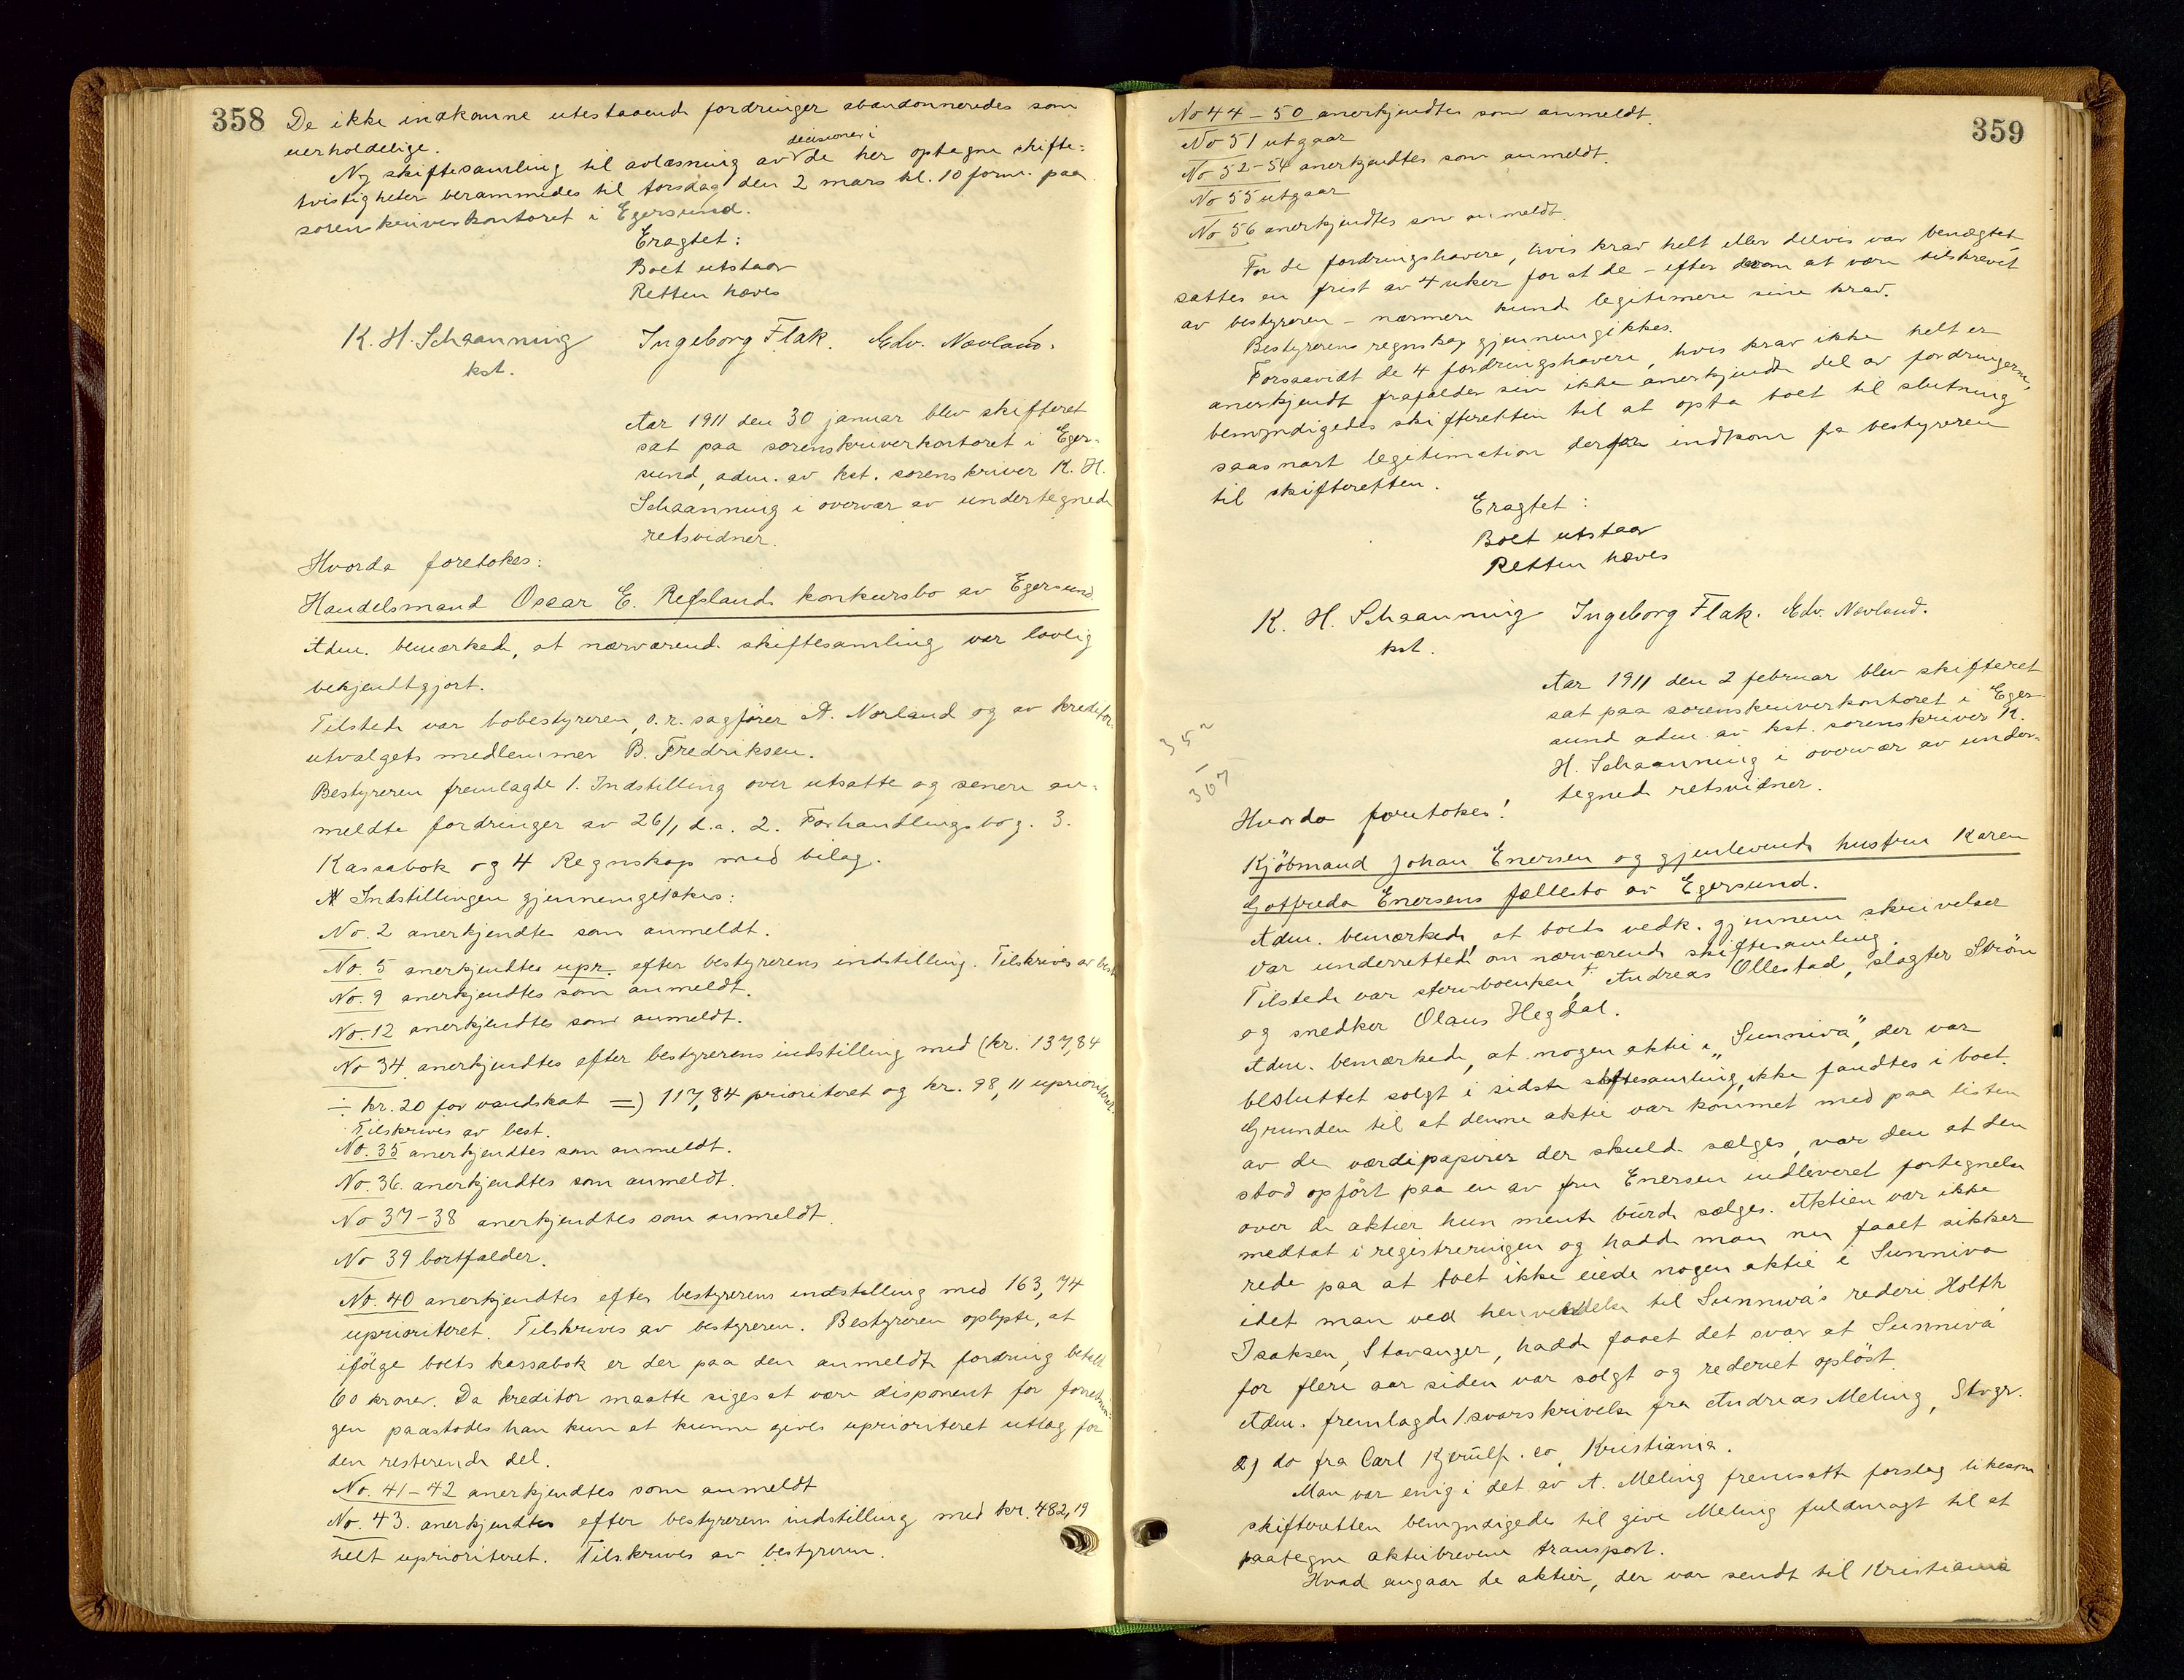 358
De ikke indkomne utestaaende fordringer abandonneredes som
uerholdelige.
Ny skiftesamling til avlæsning av decisioner i de her optagne skifte-
tvistigheter berammedes til torsdag den 2 mars kl. 10 form. paa
sorenskriverkontoret i Egersund.
Eragtet:
Boet utstaar
Retten hæves
K. H. Schaanning Ingeborg Flak. Edv. Nævland.
kst.
Aar 1911 den 30 januar blev skifteret
sat paa sorenskriverkontoret i Eger-
sund, adm. av kst. sorenskriver K. H.
Schaanning i overvær av undertegnede
retsvidner.
Hvorda foretokes:
Handelsmand Oscar E. Refslands konkursbo av Egersund.
Adm. bemærkede, at nærværende skiftesamling var lovlig
bekjendtgjort.
Tilstede var bobestyreren, o.r. sagfører A. Norland og av kreditor-
utvalgets medlemmer B. Fredriksen.
Bestyreren fremlagde 1. Indstilling over utsatte og senere an-
meldte fordringer av 26/1 d.a. 2. Forhandlingsbog. 3.
Kassabok og 4 Regnskap med bilag.
Indstillingen gjennemgikkes:
No. 2 anerkjendtes som anmeldt.
No. 5 anerkjendtes upr. efter bestyrerens indstilling. Tilskrives av best.
No. 9 anerkjendtes som anmeldt.
No. 12 anerkjendtes som anmeldt.
No 34. anerkjendtes efter bestyrerens indstilling med (kr. 137,84
÷ kr. 20 for vandskat =) 117,84 prioritoret og kr. 98,11 uprioriteret.
Tilskrives av best.
No. 35 anerkjendtes som anmeldt.
No. 36. anerkjendtes som anmeldt.
No 37-38 anerkjendtes som anmeldt.
No 39 bortfalder.
No. 40 anerkjendtes efter bestyrerens indstilling med 163,74
uprioriteret. Tilskrives av bestyreren. Bestyreren oplyste, at
ifølge boets kassabok er der paa den anmeldte fordring betalt
60 kroner. Da kreditor maatte siges at være disponent for forretnin-
gen paastodes han kun at kunne gives uprioriteret utlæg for
den resterende del.
No. 41-42 anerkjendtes som anmeldt
No. 43. anerkjendtes efter bestyrerens indstilling med kr. 482,19
helt uprioriteret. Tilskrives av bestyreren.
359
No 44-50 anerkjendtes som anmeldt.
No 51 utgaar
No 52-54 anerkjendtes som anmeldt.
No 55 utgaar
No 56 anerkjendtes som anmeldt.
For de fordringshavere, hvis krav helt eller delvis var benægtet
sattes en frist av 4 uker for at de - efter at være tilskrevet
av bestyreren - nærmere kunde legitimere sine krav.
Bestyrerens regnskap gjennemgikkes.
Forsaavidt de 4 fordringshavere, hvis krav ikke helt er
anerkjendt frafalder sin ikke anerkjendte del av fordringerne,
bemyndigedes skifteretten til at opta boet til slutning
saasnart legitimation derfor indkom fra bestyreren
til skifteretten.
Eragtet:
Boet utstaar
Retten hæves
K. H. Schaanning Ingeborg Flak. Edv. Nævland.
kst.
Aar 1911 den 2 februar blev skifteret
sat paa sorenskriverkontoret i Eger-
sund adm. av kst. sorenskriver K.
H. Schaanning i overvær av under-
tegnede retsvidner.
352
-
367
Hvorda foretokes!
Kjöbmand Johan Enersen og gjenlevende hustru Karen
Gotfreda Enersens fællesbo av Egersund.
Adm. bemærkede, at boets vedk. gjennem skrivelser
var underrettede om nærværende skiftesamling.
Tilstede var stervboenken, Andreas Ollestad, slagter Ström
og snedker Olaus Hegdal.
Adm. bemærkede, at nogen aktie i „Sunniva", der var
besluttet solgt i sidste skiftesamling, ikke fandtes i boet.
Grunden til at denne aktie var kommet med paa listen
av de værdipapirer der skulde sælges, var den at den
stod opført paa en av fru Enersen indleveret fortegnelse
over de aktier hun mente burde sælges. Aktien var ikke
medtat i registreringen og hadde man nu faaet sikker
rede paa at boet ikke eiede nogen aktie i Sunniva
idet man ved henvendelse til Sunnivas rederi Holth
Isaksen, Stavanger, hadde faaet det svar at Sunniva
for flere aar siden var solgt og rederiet oplöst.
Adm. fremlagde 1 svarskrivelse fra Andreas Meling, Stvgr.
2) do fra Carl Kjerulf. co, Kristiania.
Man var enig i det av A. Meling fremsatte forslag likesom
skifteretten bemyndigedes til give Meling fuldmagt til at
paategne aktiebrevene transport.
Hvad angaar de aktier, der var sendt til Kristiania